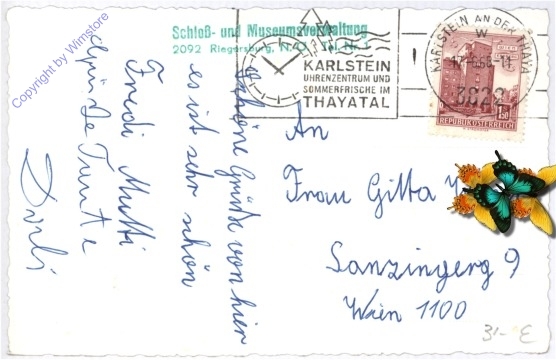 Copyright by Wimstore
Schloß- und Museumsverwaltung
2092 Riegersburg, N.Ö. Tel. Nr. 1
KARLSTEIN
UHRENZENTRUM UND
SOMMERFRISCHE IM
THAYATAL
KARLSTEIN AN DER THAYA
3822
WIEN
1.50
REPUBLIK ÖSTERREICH
Schöne Grüße von hier
es ist sehr schön
Fredi Mutti
Tante
An
Frau Gitta
Sanzingerg 9
Wien 1100
31 - E